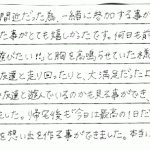 間近だった為、一緒に参加する事が
た事がとても嬉しかったです。何日も前
遊びたい!!」と胸を高鳴らせていた様
友達と走り回ったりと、大満足だったよ
の友達と遊んでいるのも見る事ができ、
ました。帰宅後も“今日は最高の1日だ
を想い出を作る事ができました。本当に